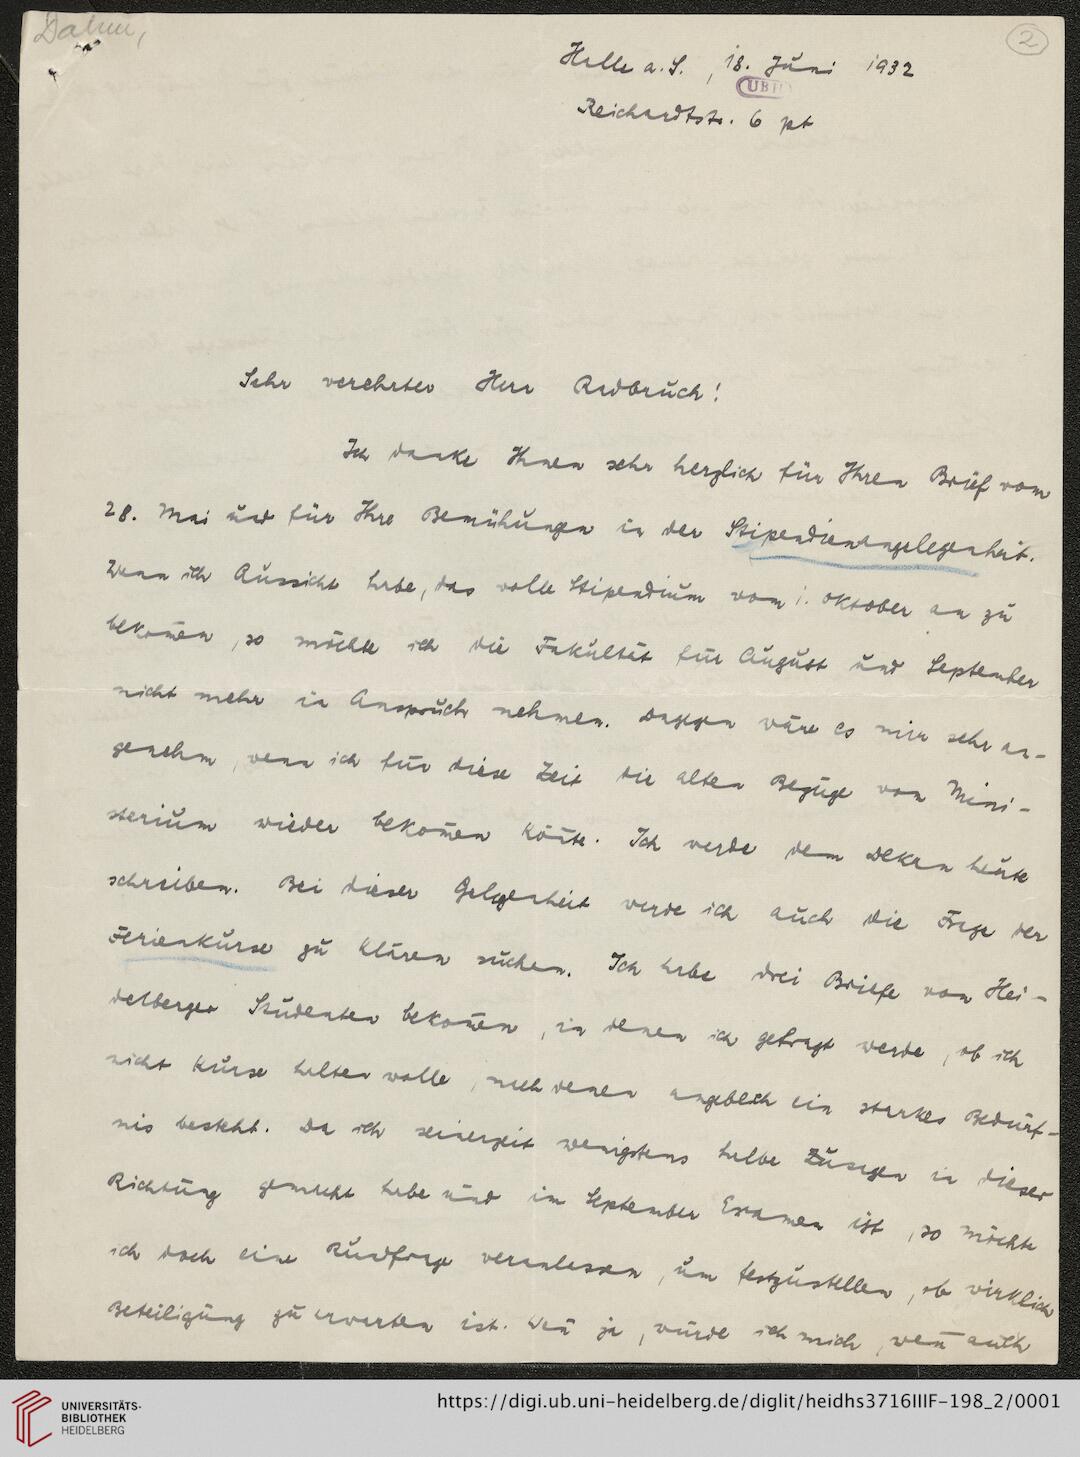 Dahm,
2
Halle a. S., 18. Juni 1932
UBH
Reichardtstr. 6 pt
Sehr verehrter Herr Radbruch!
Ich danke Ihnen sehr herzlich für Ihren Brief vom
28. Mai und für Ihre Bemühungen in der Stipendienangelegenheit.
Wenn ich Aussicht habe, das volle Stipendium vom 1. Oktober an zu
bekom̄en, so möchte ich die Fakultät für August und September
nicht mehr in Anspruch nehmen. Dagegen wäre es mir sehr an-
genehm, wenn ich für diese Zeit die alten Bezüge vom Mini-
sterium wieder bekom̄en kön̄te. Ich werde dem Dekan heute
schreiben. Bei dieser Gelgenheit werde ich auch die Frage der
Ferienkurse zu klären suchen. Ich habe drei Briefe von Hei-
delberger Studenten bekom̄en, in denen ich gefragt werde, ob ich
nicht Kurse halten wolle, nach denen angeblich ein starkes Bedürf-
nis besteht. Da ich seinerzeit wenigstens halbe Zusagen in dieser
Richtung gemacht habe und im September Examen ist, so möchte
ich doch eine Rundfrage veranlassen, um festzustellen, ob wirklich
Beteiligung zu erwarten ist. Wen̄ ja, würde ich mich, wen̄ auch
UNIVERSITÄTS-
BIBLIOTHEK
HEIDELBERG
https://digi.ub.uni-heidelberg.de/diglit/heidhs3716IIIF-198_2/0001